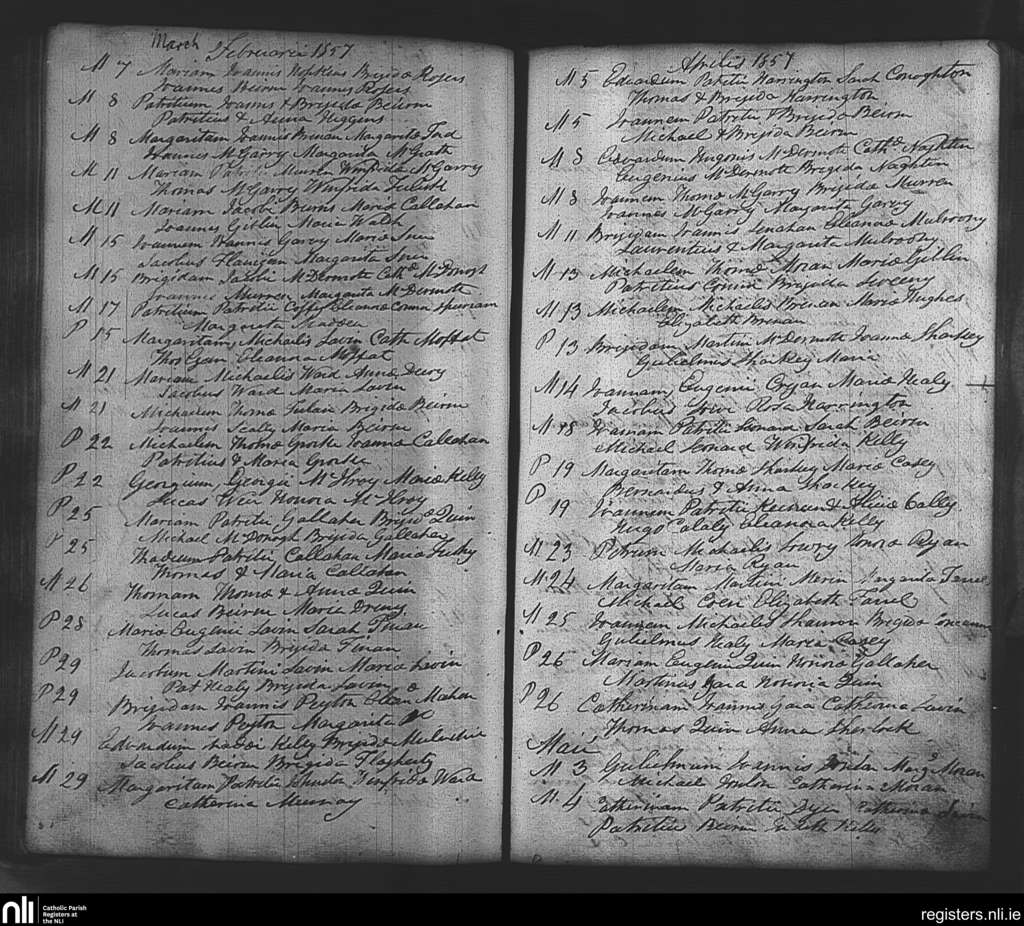 March Februarii 1857
M 7 Mariam Joannis Hopkins Brigida Rogers
Joannes Beirne Joannes Rogers
M 8 Patritium Joannis & Brigida Beirne
Patritius & Anna Higgins
M 8 Margaritam Joannis Brenan Margarita Ford
Joannes McGarry Margarita McGrath
M 11 Mariam Patritii Murren Winifrida McGarry
Thomas McGarry Winifrida
M 11 Mariam Jacobi Beirne Maria Callahan
Joannes Giblin Maria Walsh
M 15 Joannem Joannis Garvy Maria
Jacobus Flanigan Margarita
M 15 Brigidam Jacobi McDermott Cath
Joannes Murren Margarita McDermott
M 17 Patritium Patritii Coffy Eleanora spuriam
Margarita Madden
P 15 Margaritam Michaelis Lavin Cath Moffat
Thos Egan Eleanora Moffat
M 21 Mariam Michaelis Ward Anna
Jacobus Ward Maria Lavin
M 21 Michaelem Thoma Brigida Beirne
Joannes Scally Maria Beirne
P 22 Michaelem Thoma Joanna Callahan
Patritius & Maria
P 22 Georgium Georgii McIlroy Maria Kelly
Lucas Weir Honora McIlroy
P 25 Mariam Patritii Gallaher Brigida Quin
Michael McDonogh Brigida Gallahan
P 25 Thadeum Patritii Callahan Maria
Thomas & Maria Callahan
M 26 Thomam Thoma & Anna Quin
Lucas Beirne Maria
P 28 Maria Eugenii Lavin Sarah Finan
Thomas Lavin Brigida Finan
P 29 Jacobum Martini Lavin Maria Lavin
Pat Healy Brigida Lavin
P 29 Brigidam Joannis Peyton Elean Mahon
Joannes Peyton Margarita Do
M 29 Edvardum Kelly Brigida
Jacobus Beirne Brigida Flagherty
M 29 Margaritam Patritii Winifrida Ward
Catherina Murray
Aprilis 1857
M 5 Edvardum Patritii Harrington Sarah Conoghton
Thomas & Brigida Harrington
M 5 Joannem Patritii & Brigida Beirne
Michael & Brigida Beirne
M 8 Edvardum Hugonis McDermott Cath Naghten
Eugenius McDermott Brigida Naghten
M 8 Joannem Thoma McGarry Brigida Murren
Joannes McGarry Margarita Garvy
M 11 Brigidam Joannis Lenahan Eleanora Mulroony
Laurentius & Margarita Mulroony
M 13 Michaelem Thoma Moran Maria Giblin
Patritius Brigida Sweeny
M 13 Michaelem Michaelis Brenan Maria Hughes
Elizabeth Brenan
P 13 Brigidam Martini McDermott Joanna Sharkey
Gulielmus Sharkey Maria
M 14 Joannam Eugenii Cryan Maria Healy
Jacobus Rosa Harrington
M 18 Joannem Patritii Leonard Sarah Beirne
Michael Leonard Winifrida Kelly
P 19 Margaritam Thoma Sharkey Maria Casey
Bernardus & Anna Sharkey
P 19 Joannem Patritii Keenan & Alicia Cally
Hugo Calaly Eleanora Kelly
M 23 Petrum Michaelis Lowry Honora Ryan
Maria Ryan
M 24 Margaritam Martini Margarita Farrel
Michael Coen Elizabeth Farrel
M 25 Joannem Michaelis Shannon Brigida
Gulielmus Healy Maria Casey
P 26 Mariam Eugenii Quin Honora Gallaher
Martinus Gara Honoria Quin
P 26 Catherinam Joannis Gara Catherina Lavin
Thomas Quin Anna Sherlock
Maii
M 3 Gulielmum Joannis Jordan Marg Moran
Michael Catherina Moran
M 4 Catherinam Patritii Dyer Catherina
Patritii Beirne Judith Kelly
nli Catholic Parish
Registers at
the NLI
registers.nli.ie